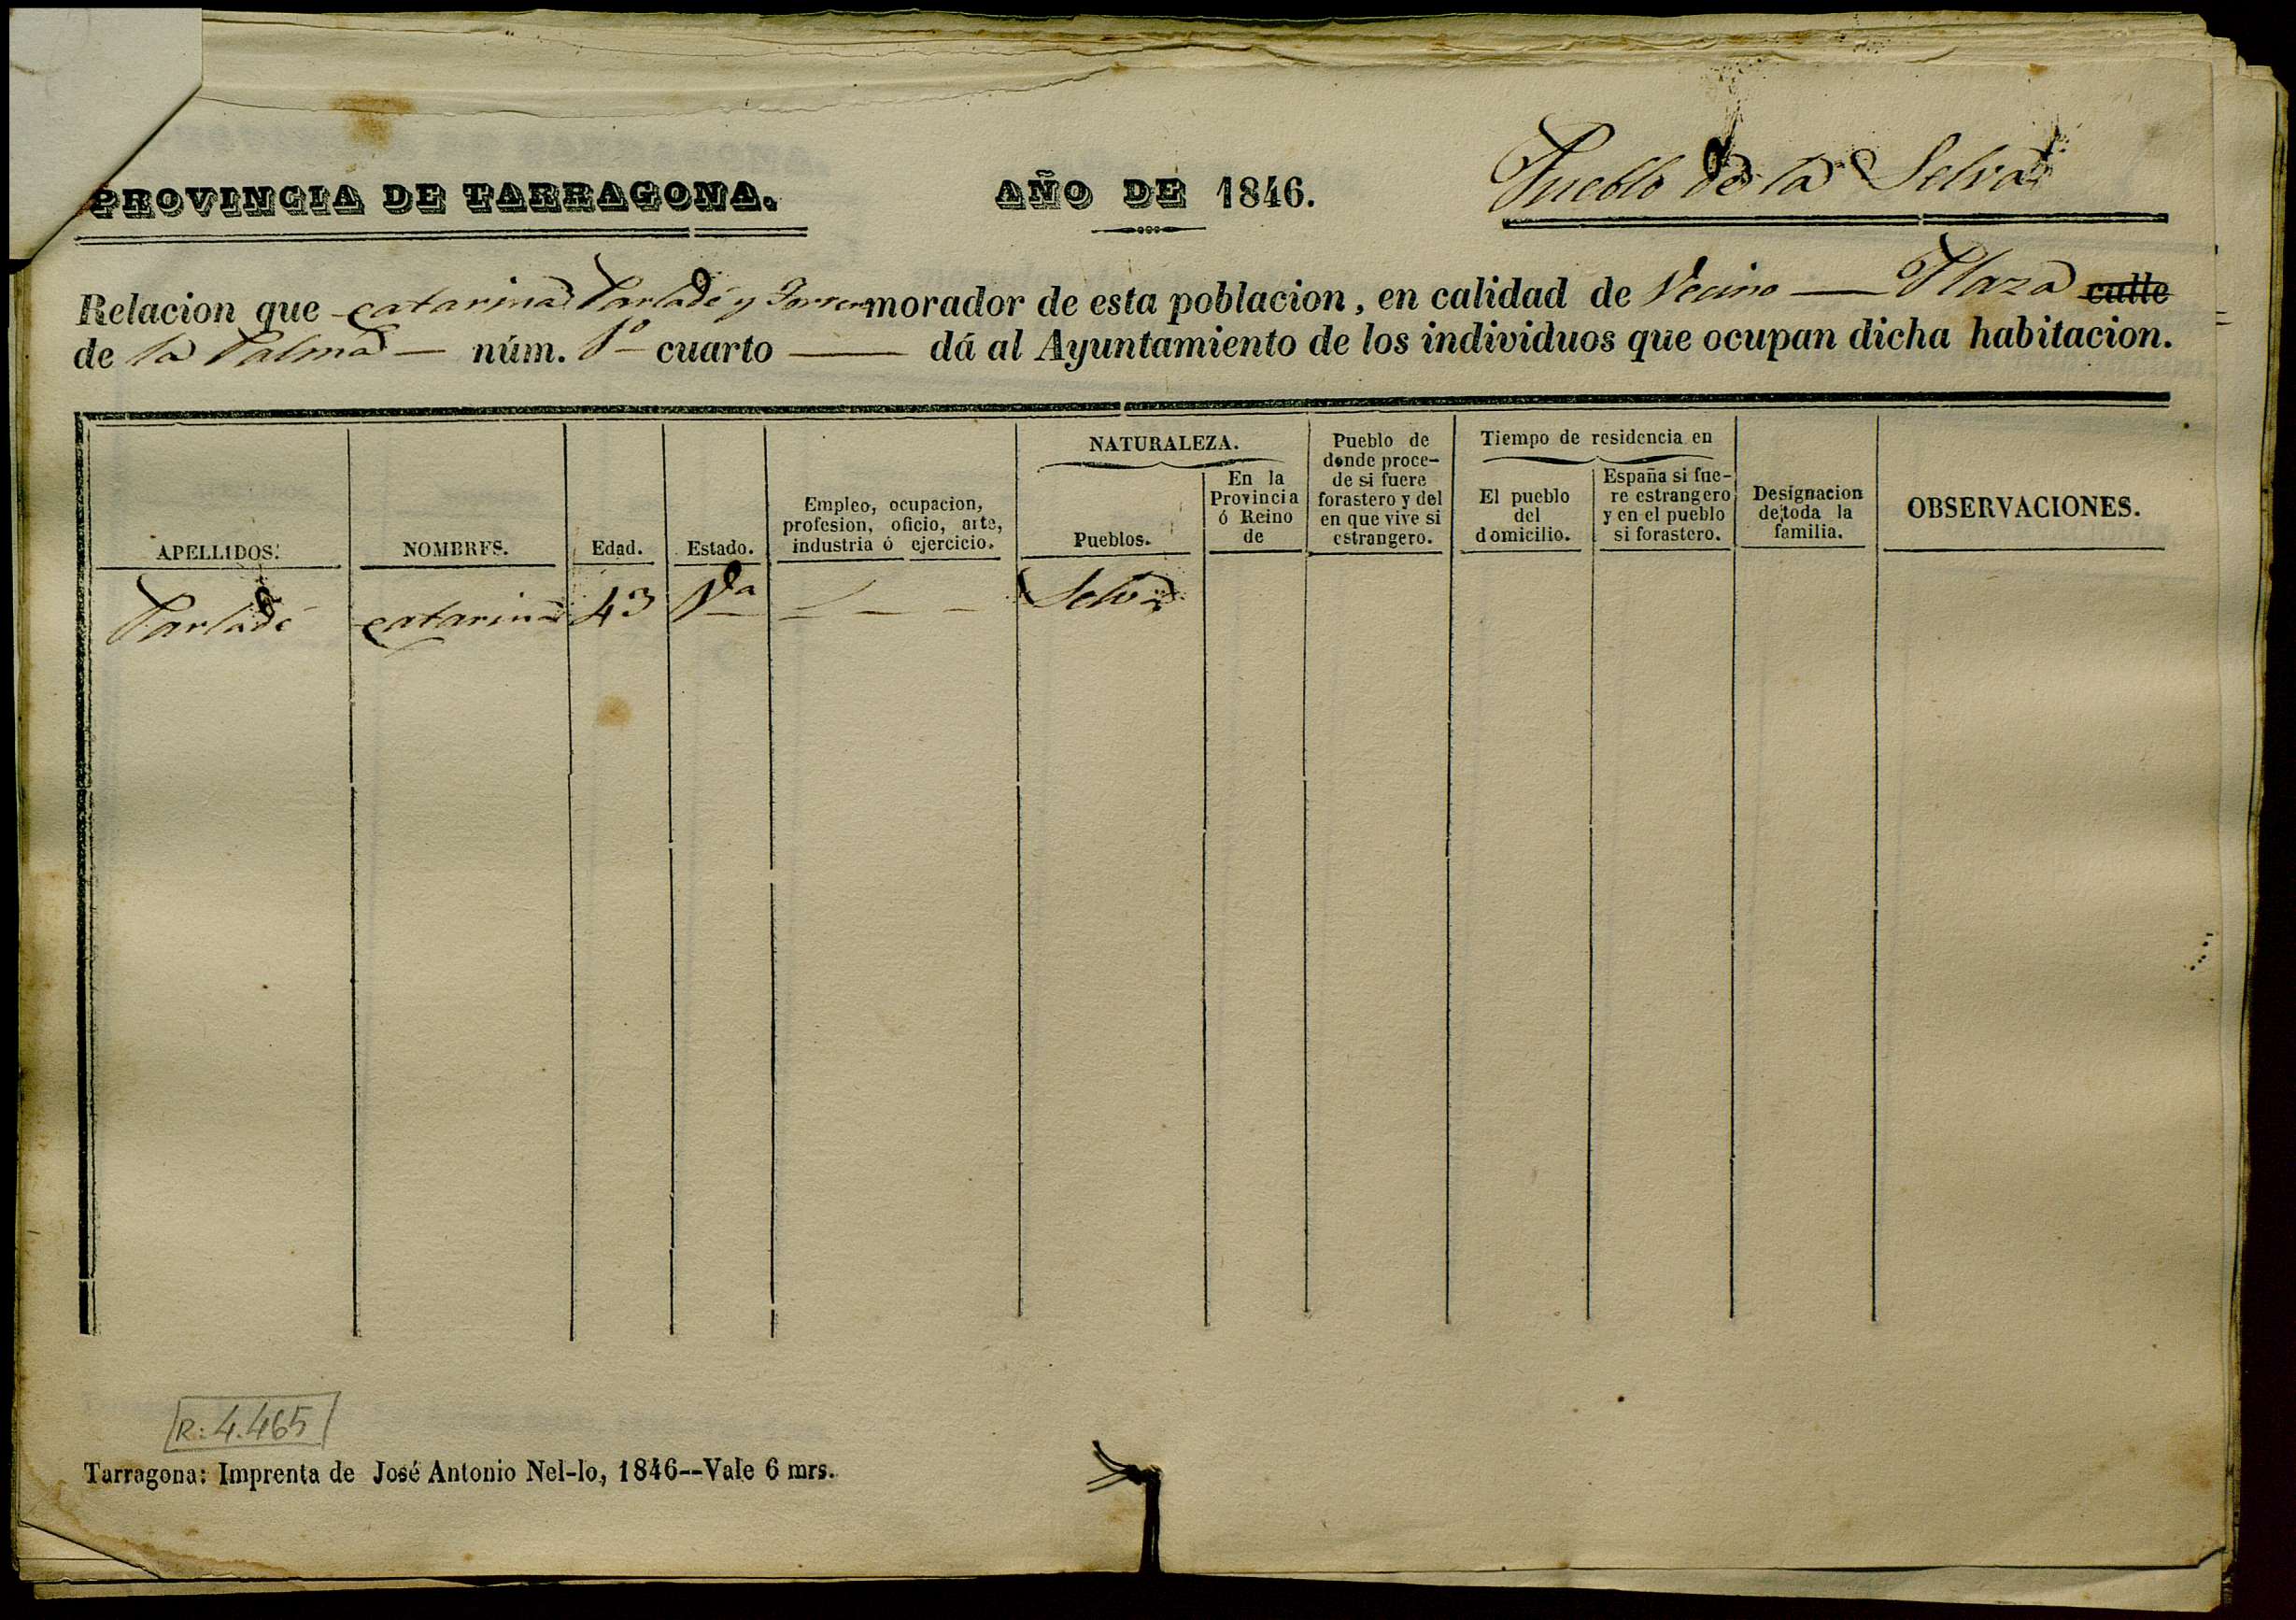 PROVINCIA DE TARRAGONA. AÑO DE 1846. Pueblo de la Selva
Relacion que catarina Parladé y morador de esta poblacion, en calidad de Vecino — Plaza calle
de la Palma — núm. 1º cuarto — dá al Ayuntamiento de los individuos que ocupan dicha habitacion.
APELLIDOS.
NOMBRES.
Edad.
Estado.
Empleo, ocupacion,
profesion, oficio, arte,
industria ó ejercicio.
NATURALEZA.
Pueblos.
En la
Provincia
ó Reino
de
Pueblo de
donde proce-
de si fuere
forastero y del
en que vive si
estrangero.
Tiempo de residencia en
El pueblo
del
domicilio.
España si fue-
re estrangero
y en el pueblo
si forastero.
Designacion
de toda la
familia.
OBSERVACIONES.
Parladé catarina 43 Vda — — — Selva
R: 4.465
Tarragona: Imprenta de José Antonio Nel-lo, 1846--Vale 6 mrs.